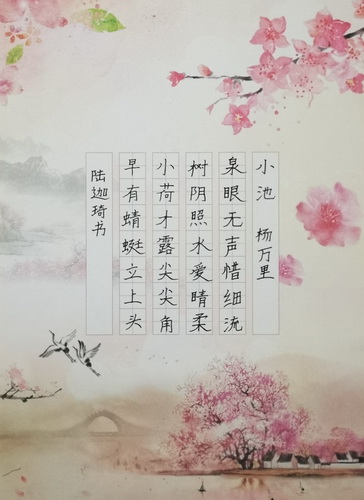 小池 杨万里
泉眼无声惜细流
树阴照水爱晴柔
小荷才露尖尖角
早有蜻蜓立上头
陆迦琦书